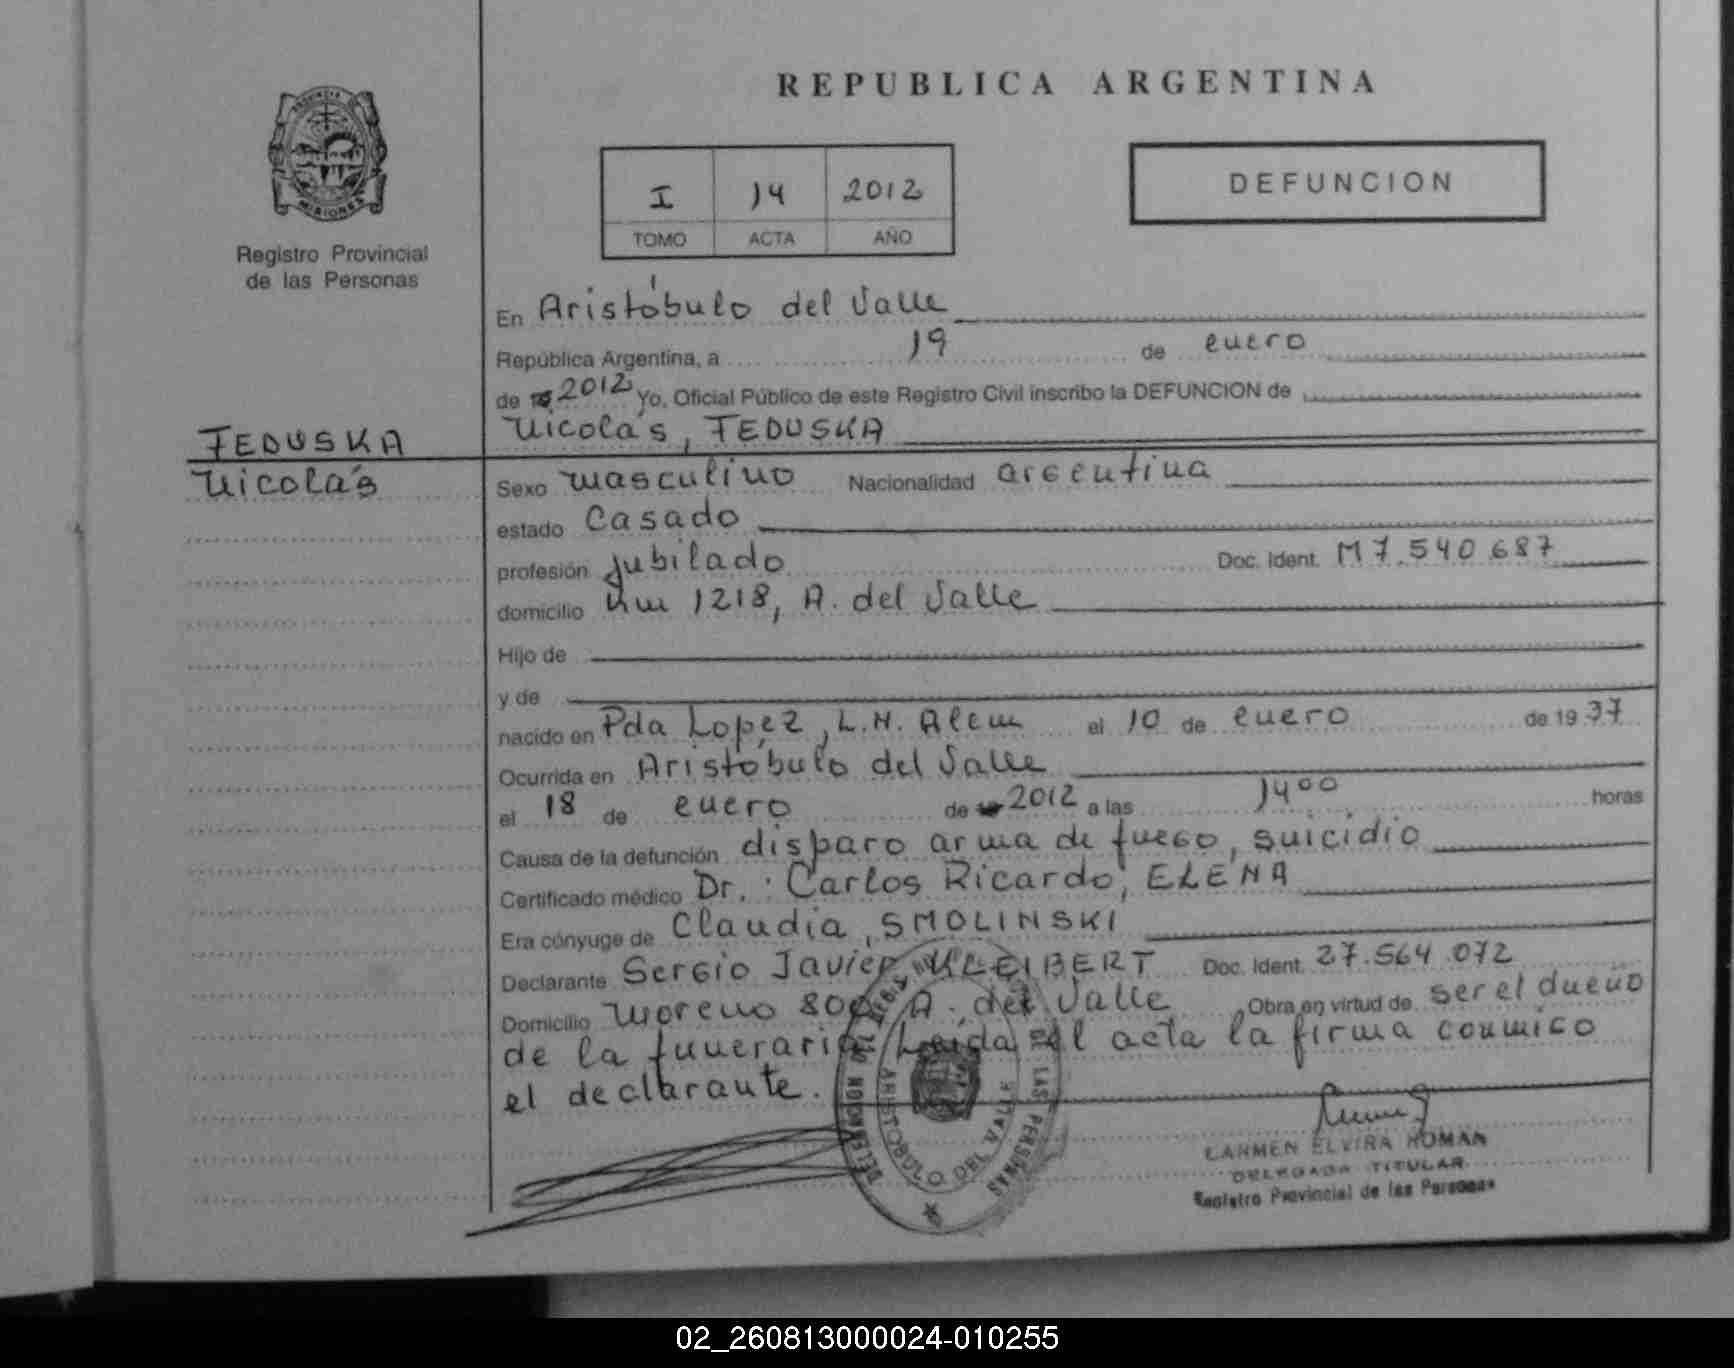 REPUBLICA ARGENTINA
PROVINCIA DE
MISIONES
Registro Provincial
de las Personas
I 14 2012
TOMO ACTA AÑO
DEFUNCION
En Aristóbulo del Valle
República Argentina, a 19 de enero
de 2012 Yo, Oficial Público de este Registro Civil inscribo la DEFUNCION de
Nicolás, FEDUSKA
FEDUSKA
Nicolás
Sexo masculino Nacionalidad argentina
estado Casado
profesión jubilado Doc. Ident. M 7.540.687
domicilio Km 1218, A. del Valle
Hijo de
y de
nacido en Pda Lopez, L.N. Alem el 10 de enero de 1937
Ocurrida en Aristobulo del Valle
el 18 de enero de 2012 a las 14 00 horas
Causa de la defunción disparo arma de fuego, suicidio
Certificado médico Dr.: Carlos Ricardo, ELENA
Era cónyuge de Claudia, SMOLINSKI
Declarante Sergio Javier KLEIBERT Doc. Ident. 27.564.072
Domicilio Moreno 800, A. del Valle Obra en virtud de ser el dueño
de la funeraria. Leida el acta la firma conmigo
el declarante.
ARISTOBULO DEL VALLE
DE LAS PERSONAS
CARMEN ELVIRA ROMAN
DELEGADA TITULAR
Registro Provincial de las Personas
02_260813000024-010255